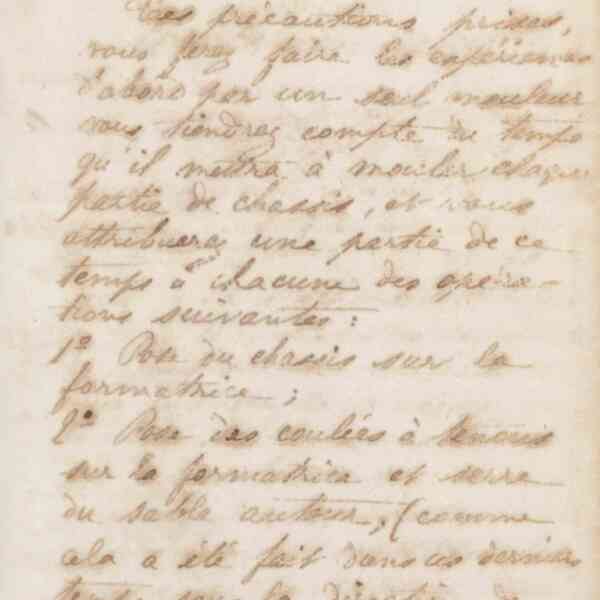 Ces précautions prises,
vous ferez faire les expériences
d'abord par un seul mouleur
vous tiendrez compte du temps
qu'il mettra à mouler chaque
partie de chassis, et vous
attribuerez une partie de ce
temps à chacune des opéra-
tions suivantes :
1º Pose du chassis sur la
formatrice ;
2º Pose des coulées à tenons
sur la formatrice et serre
du sable autour, (comme
cela a été fait dans ces derniers
temps sous la direction de